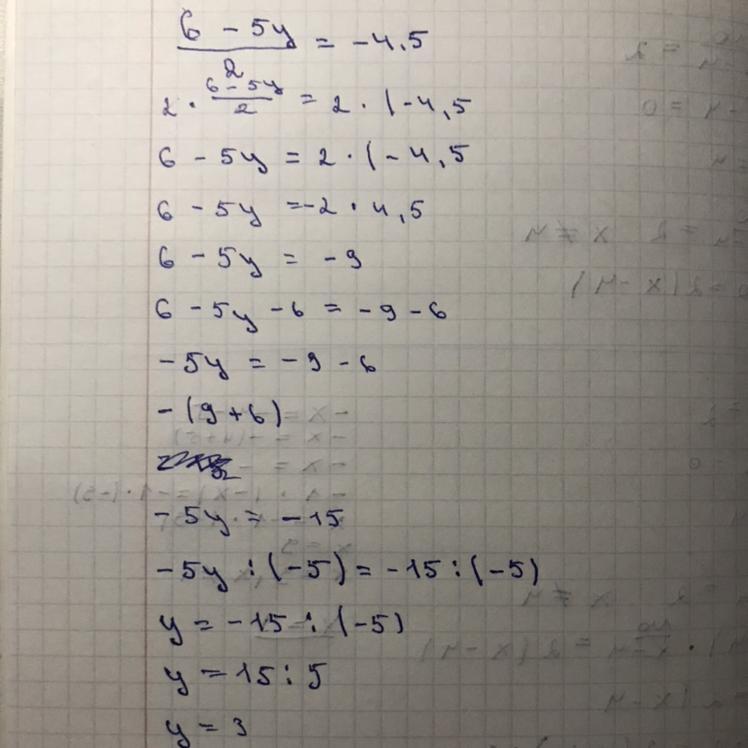 6 - 5y / 2 = -4,5
2 · 6 - 5y / 2 = 2 · (-4,5
6 - 5y = 2 · (-4,5
6 - 5y = -2 · 4,5
6 - 5y = -9
6 - 5y - 6 = -9 - 6
-5y = -9 - 6
-(9+6)
-5y = -15
-5y : (-5) = -15 : (-5)
y = -15 : (-5)
y = 15 : 5
y = 3